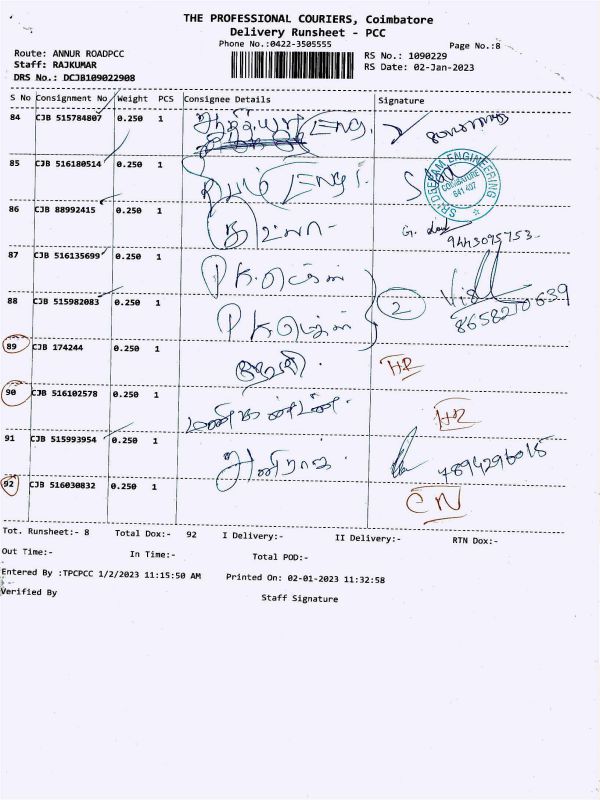 THE PROFESSIONAL COURIERS, Coimbatore
Delivery Runsheet - PCC
Phone No.:0422-3505555
Page No.:8
Route: ANNUR ROADPCC
RS No.: 1090229
Staff: RAJKUMAR
RS Date: 02-Jan-2023
DRS No.: DCJB109022908
S No Consignment No Weight PCS Consignee Details Signature
84 CJB 515784807 0.250 1 Eng.
85 CJB 516180514 0.250 1 Engi.
SRI DREAM ENGINEERING
COIMBATORE
641 407
86 CJB 88992415 0.250 1
9443095753
87 CJB 516135699 0.250 1 P.K.
88 CJB 515982083 0.250 1 P.K. 2
8658210639
89 CJB 174244 0.250 1
90 CJB 516102578 0.250 1 மணிகண்டன்.
91 CJB 515993954 0.250 1 7894296015
92 CJB 516030832 0.250 1 CN
Tot. Runsheet:- 8 Total Dox:- 92 I Delivery:- II Delivery:- RTN Dox:-
Out Time:- In Time:- Total POD:-
Entered By :TPCPCC 1/2/2023 11:15:50 AM Printed On: 02-01-2023 11:32:58
Verified By Staff Signature